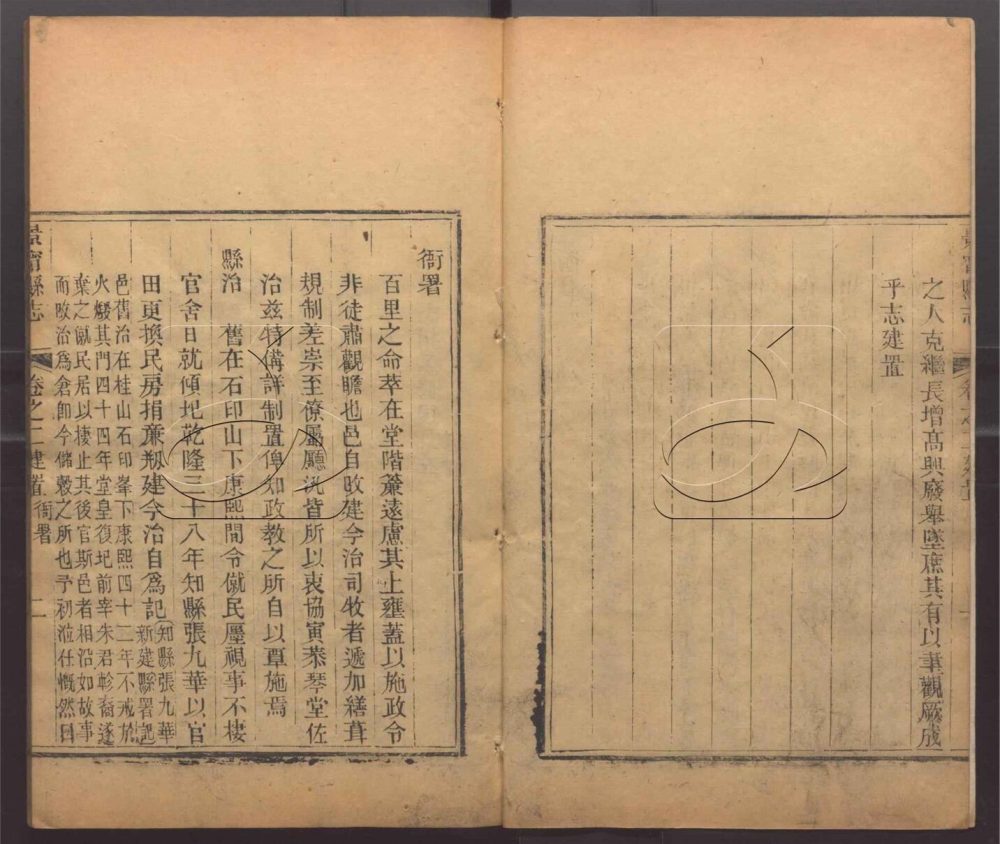 之人克繼長增高興廢舉墜應其有以聿觀厥成
乎志建置
衙署
百里之命萃在堂階簾遠慮其上壅蓋以施政令
非徒肅觀瞻也邑自改建今治司牧者遞加繕葺
規制差崇至僚屬廳汛皆所以衷協寅恭琴堂佐
治茲特備詳制置俾知政教之所自以覃施焉
縣治 舊在石印山下康熙間令僦民廛視事不棲
官舍日就傾圮乾隆三十八年知縣張九華以官
田更換民房捐廉剏建今治自爲記
知縣張九華
新建縣署記
邑舊治在桂山石印峯下康熙四十二年不戒於
火燬其門四十四年堂皇復圮前宰朱君軫裔遂
葉之僦民居以棲止其後官斯邑者相沿如故事
而改治爲倉卽今儲穀之所也予初涖仕慨然曰
景寧縣志 卷之二建置 衙署 二